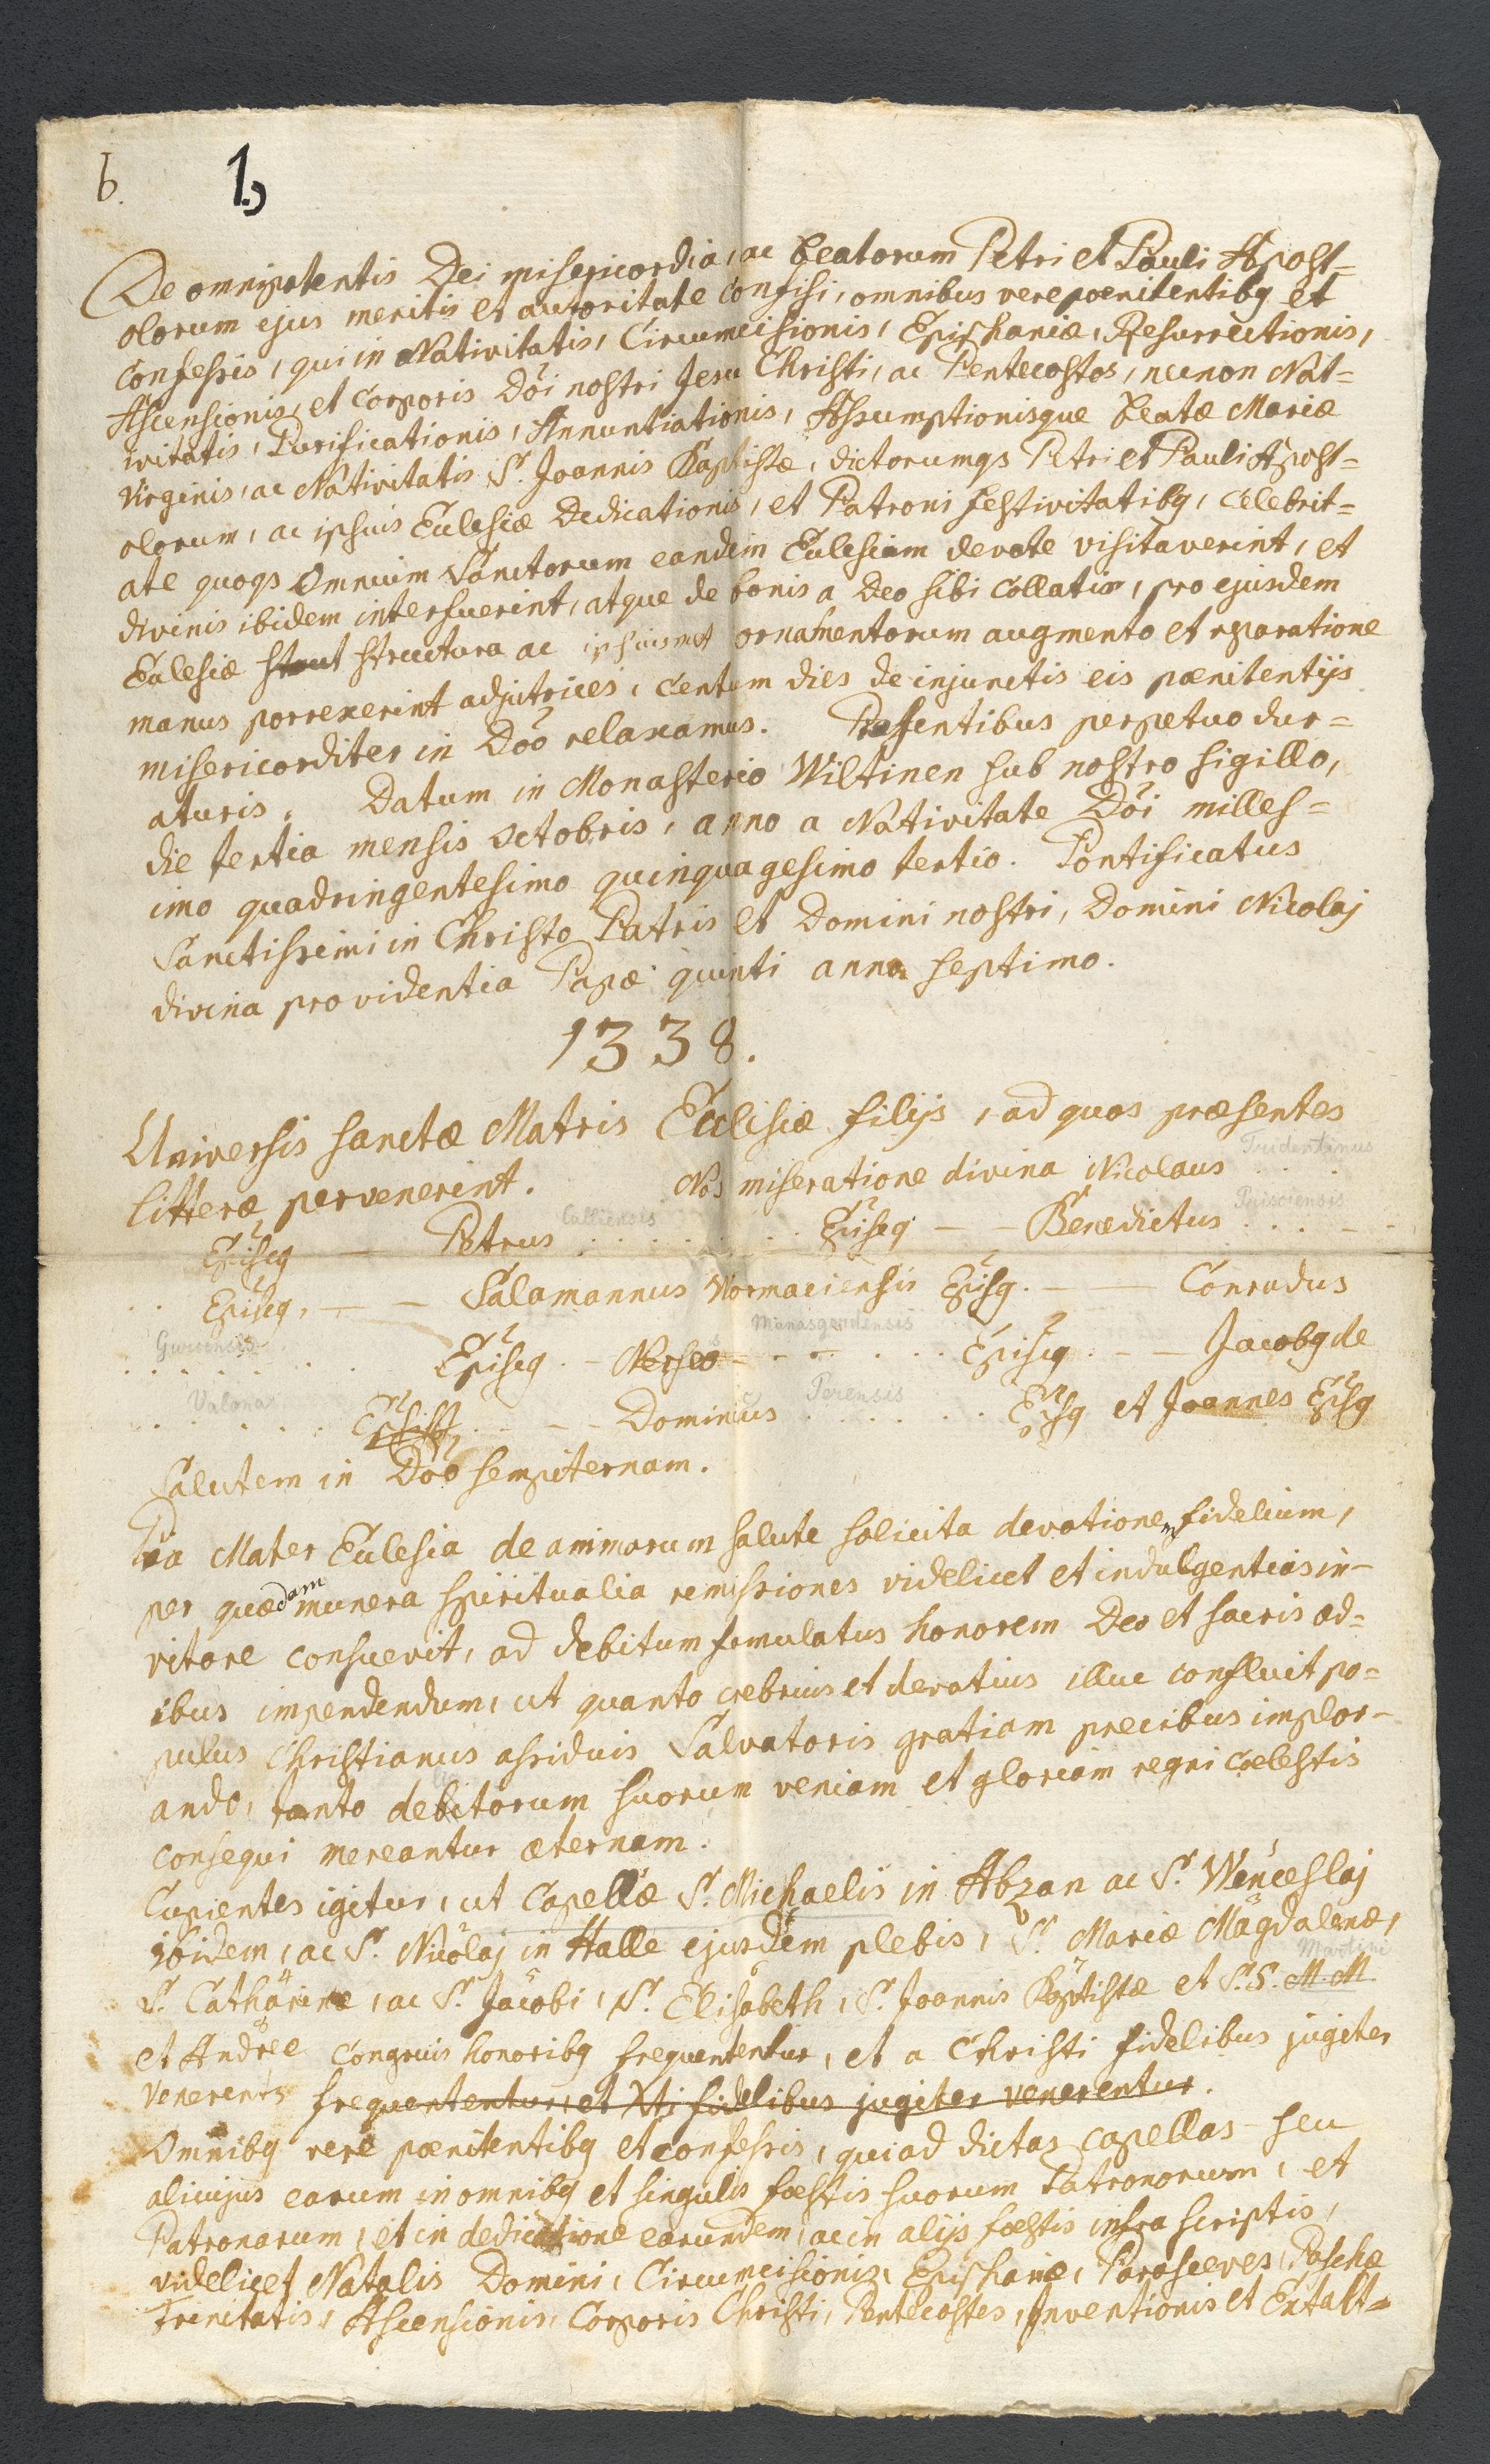 b. 1.)
De omnipotentis Dei misericordia, ac beatorum Petri et Pauli Apost=
olorum ejus meritis et autoritate confisi, omnibus vere poenitentibq et
confessis, qui in Nativitatis, Circumcisionis, Epiphaniæ, Resurrectionis,
Ascensionis, et Corporis Dõi nostri Jesu Christi, ac Pentecostes, necnon Nat=
ivitatis, Purificationis, Annuntiationis, Assumptionisque beatæ Mariæ
Virginis, ac Nativitatis S. Joannis Baptistæ, dictorumqs Petri et Pauli Apost=
olorum, ac ipsius Ecclesiæ Dedicationis, et Patroni festivitatibq, celebrit=
ate quoqs Omnium Sanctorum eandem Ecclesiam devote visitaverint, et
divinis ibidem interfuerint, atque de bonis a Deo sibi collatis, pro ejusdem
Ecclesiæ structura ac ipsiusmet ornamentorum augmento et reparatione
manus porrexerint adjutrices, centum dies de injunctis eis pœnitentijs
misericorditer in Dõo relaxamus. Præsentibus perpetuo dur=
aturis. Datum in Monasterio Wiltinen sub nostro sigillo,
die tertia mensis Octobris, anno a Nativitate Dõi milles=
imo quadringentesimo quinquagesimo tertio. Pontificatus
Sanctissimi in Christo Patris et Domini nostri, Domini Nicolaj
divina providentia Papæ quinti anno septimo.
1338.
Universis sanctæ Matris Ecclesiæ filijs, ad quos præsentes
litteræ pervenerint. Nos miseratione divina Nicolaus Tridentinus
Episcq — Petrus Calliensis Episcq — Benedictus Prisciensis
Episcq. — Salamannus Wormaciensis Episq. — Conradus
Gurcensis Episcq. - Nerses Manasgardensis Episcq. — Jacobq de
Valona Dominicus Perensis Episq et Joannes Episq
Salutem in Dõo sempiternam.
Pia Mater Ecclesia de animarum salute solicita devotionem fidelium,
per quædam munera spiritualia remissiones videlicet et indulgentias in-
vitare consuevit, ad debitum famulatus honorem Deo et sacris æd=
ibus impendendum, ut quanto crebrius et devotius illuc confluit po=
pulus Christianus assiduis Salvatoris gratiam precibus implor-
ando, tanto debitorum suorum veniam et gloriam regni cœlestis
consequi mereantur æternam.
Cupientes igitur, ut Capellæ S. Michaelis in Abzan ac S. Wenceslaj
ibidem, ac S. Nicolaj in Halle ejusdem plebis, S. Mariæ Magdalenæ,
S. Catharinæ, ac S. Jacobi, S. Elisabeth, S. Joannis Baptistæ et S.S. M.M Martini
et Andreæ congruis honoribq frequententur, et a Christi fidelibus jugiter
venerentr frequententur, et Xti fidelibus jugiter venerentur.
Omnibq vere pœnitentibq et confessis, qui ad dictas capellas seu
alicujus earum in omnibq et singulis fœstis suorum Patronorum, et
Patronarum, et in dedicatione earundem, ac in alijs fœstis infra scriptis,
videlicet Natalis Domini, Circumcisionis, Epiphaniæ, Parasceves, Paschæ
Trinitatis, Ascensionis, Corporis Christi, Pentecostes, Inventionis et Exalt=